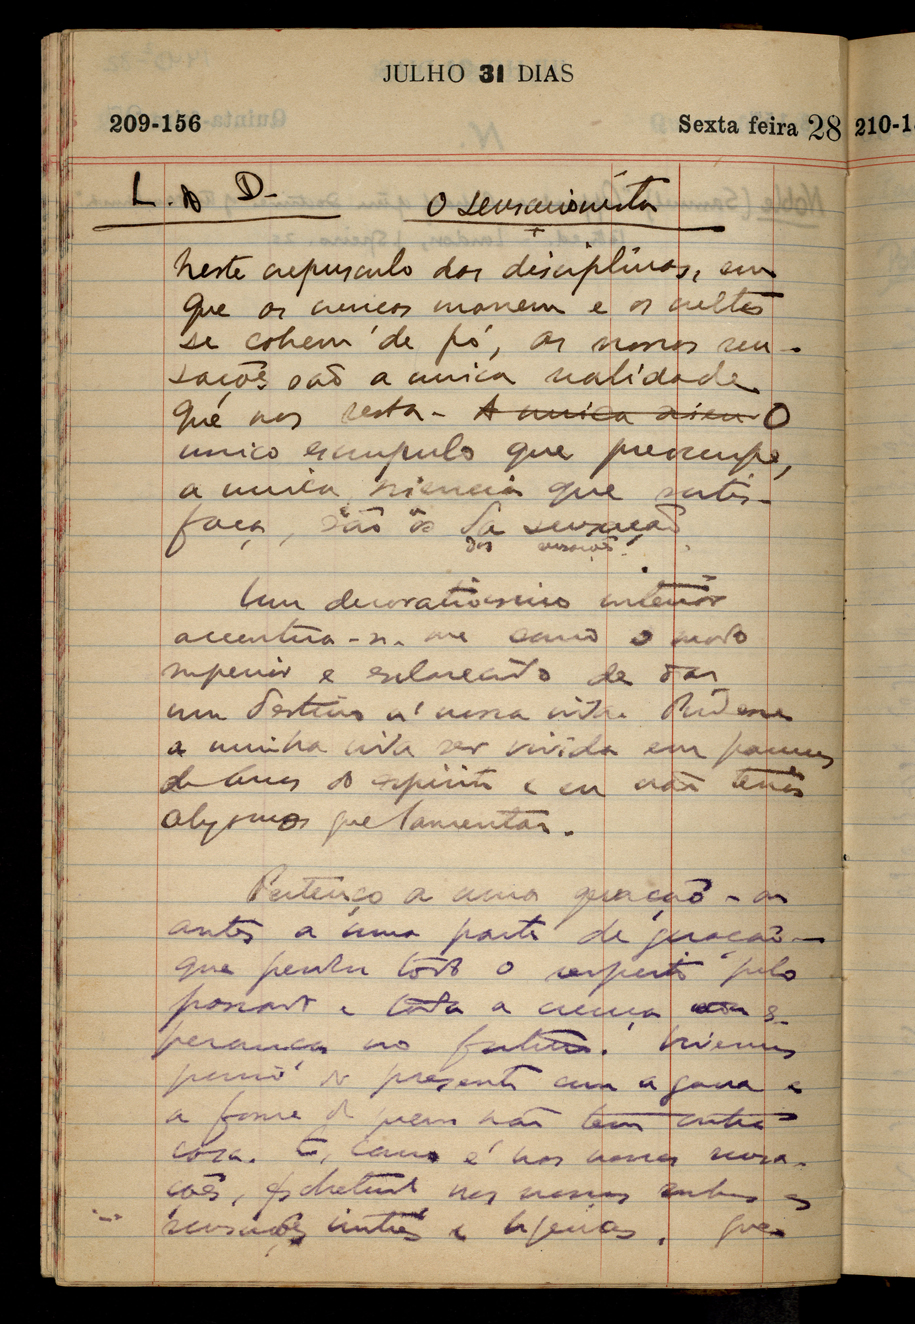 JULHO 31 DIAS
209-156
Sexta feira 28
210-1
L. do D.
O sensacionista
Neste crepusculo das disciplinas, em
que as crenças morrem e os cultos
se cobrem de pó, as nossas sen-
sações são a unica realidade
que nos resta. A unica O
unico escrupulo que preoccupe,
a unica sciencia que satis-
faça, são os da sensação
das sensações.
Um decorativismo interior
accentua-se-me como o modo
superior e esclarecido de dar
um destino á nossa vida. Pudesse
a minha vida ser vivida em pannos
de Arras do espirito e eu não teria
abysmos que lamentar.
Pertenço a uma geração - ou
antes a uma parte de geração -
que perdeu todo o respeito pelo
passado e toda a crença ou es-
perança no futuro. Vivemos
porisso do presente com a gana e
a fome de quem não tem outra
casa. E, como é nas nossas sensa-
ções, e sobretudo nas nossas
sensações inuteis e, que